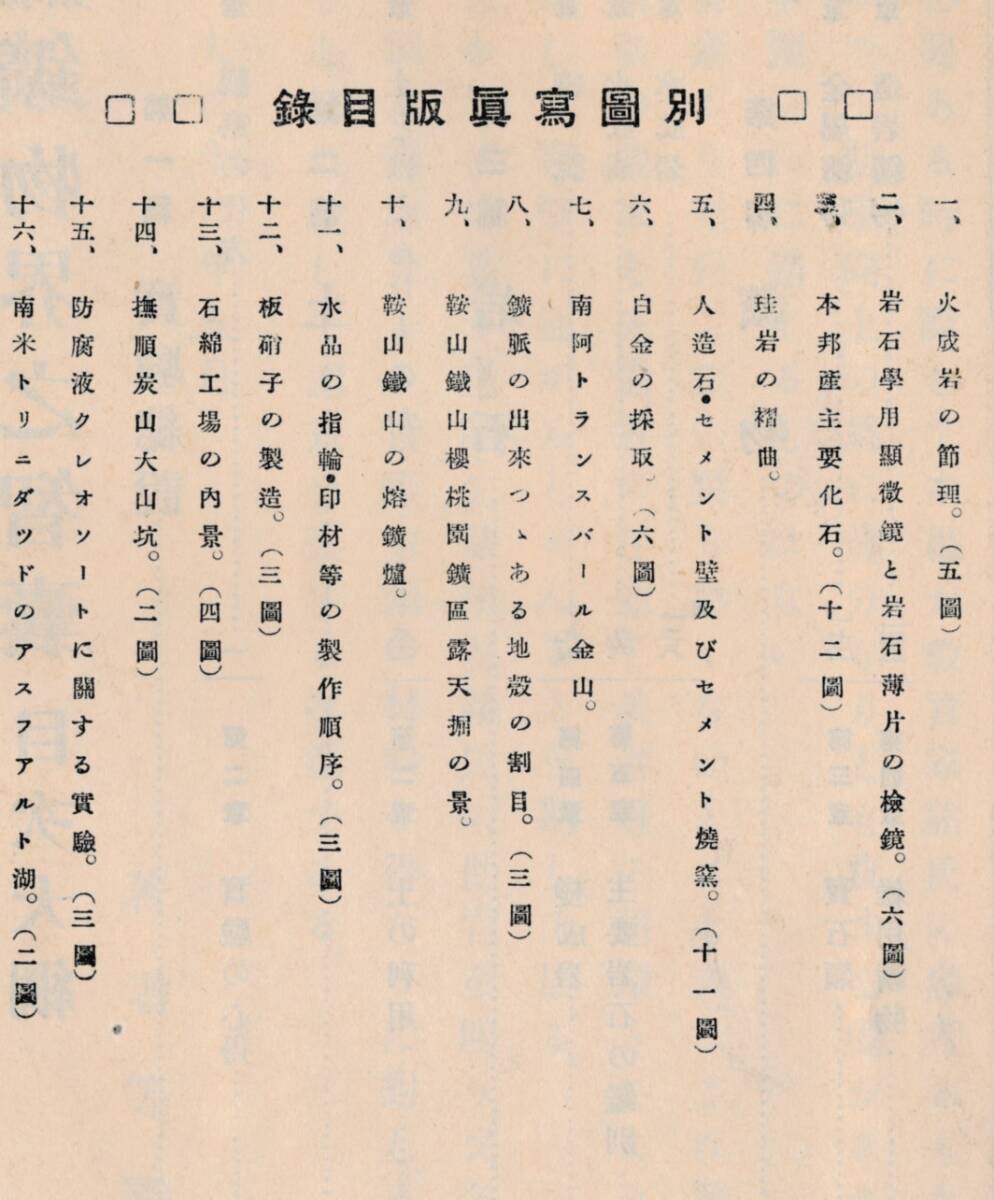 □□ 別圖寫眞版目錄 □□
一、火成岩の節理。（五圖）
二、岩石學用顯微鏡と岩石薄片の檢鏡。（六圖）
三、本邦產主要化石。（十二圖）
四、珪岩の褶曲。
五、人造石・セメント壁及びセメント燒窯。（十一圖）
六、白金の採取。（六圖）
七、南阿トランスバール金山。
八、鑛脈の出來つゝある地殼の割目。（三圖）
九、鞍山鐵山櫻桃園鑛區露天掘の景。
十、鞍山鐵山の熔鑛爐。
十一、水品の指輪・印材等の製作順序。（三圖）
十二、板硝子の製造。（三圖）
十三、石綿工場の內景。（四圖）
十四、撫順炭山大山坑。（二圖）
十五、防腐液クレオソートに關する實驗。（三圖）
十六、南米トリニダツドのアスフアルト湖。（二圖）